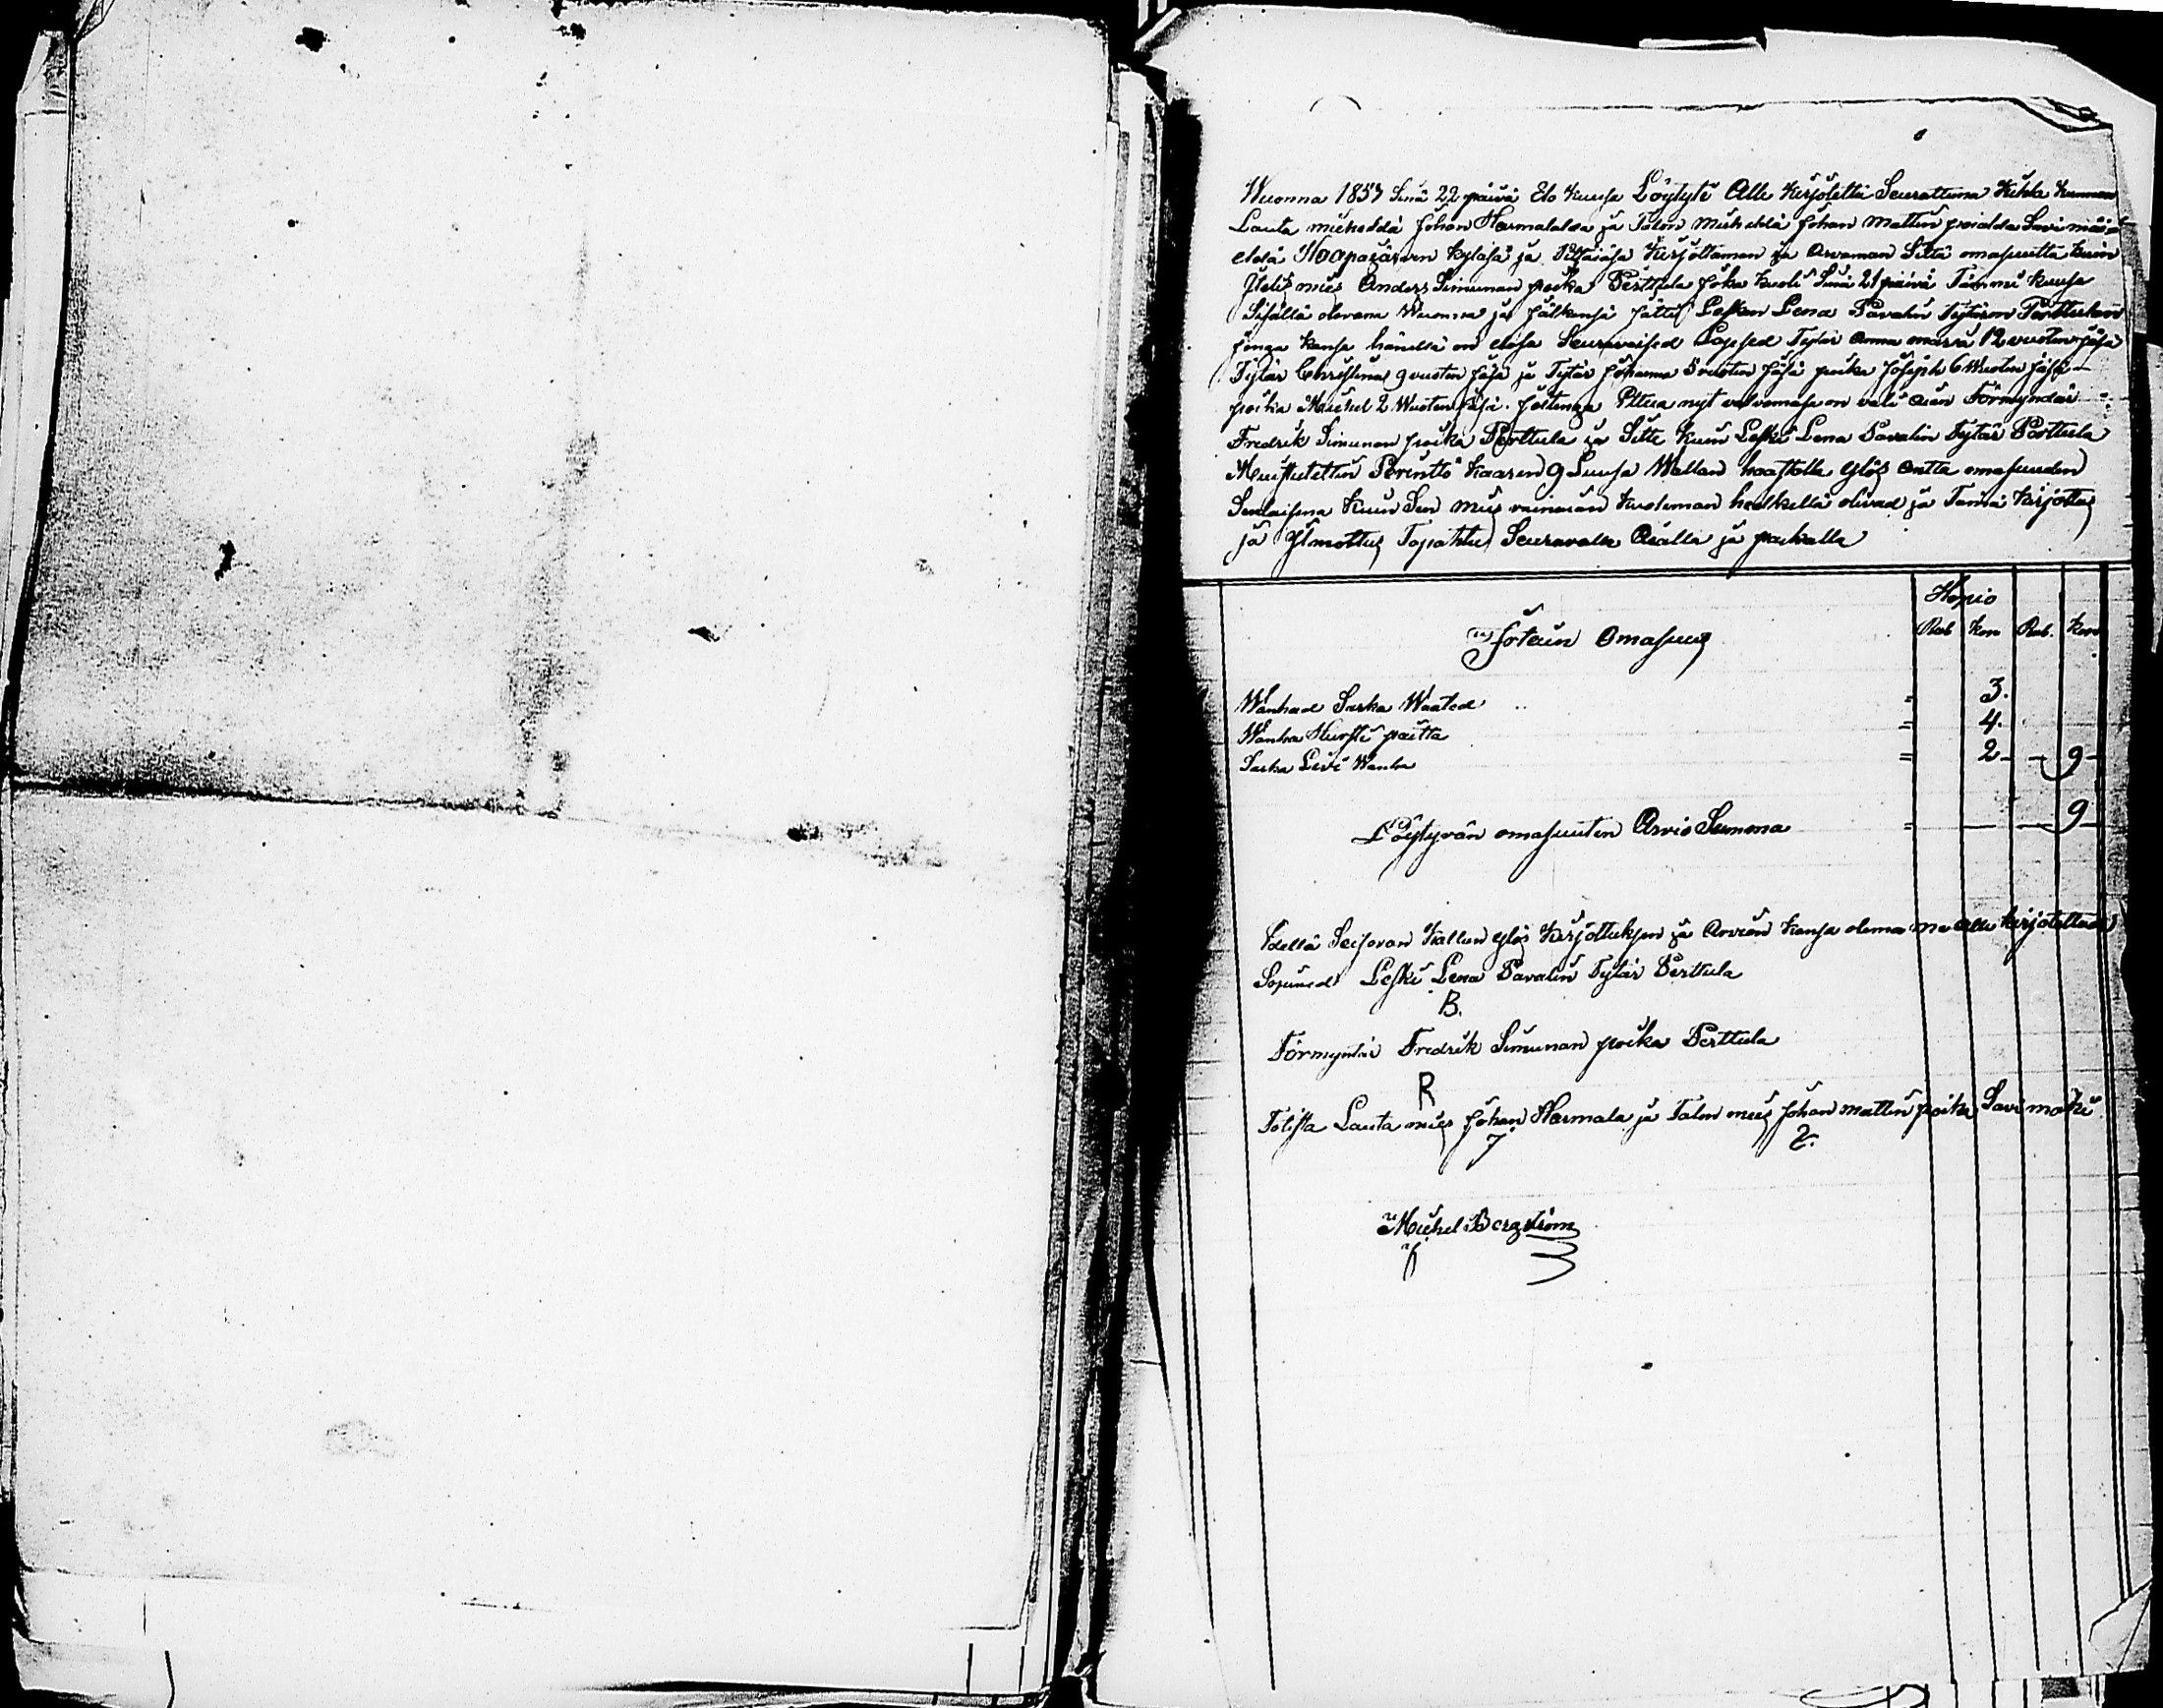 Wuonna 1853 Sinä 22 päivä Elo kuusa Löytyti Alle kirjotettä Seurattuna Kihla kunnan
Lauta miehedä Johan Harmalalda ja Talon mieheldä Johan Mattin poialda Savi mäi-
eldä Haapajärven kyläsä ja Pitäjäsä kirjottaman ja arvaman Sittä omasuutta kuin
Itelis mies Anders Simunan poika Perttula joka kuoli Sinä 21 päivä Tammi kuusa
Sisällä olevana Wuonna ja jälkensä jätti Lesken Lena Pavalin Tyttären Perttulan
jonga kansa hänellä on elosa Seuravaised Lapsed Tytär Anna maria 12 vuoten jäsä
Tytär Christina 9 vuoten jäsä ja Tytär Johanna 5 vuoten jäsä poika Joseph 6 Wuoten jäsä
poika Michel 2 Wuoten jäsä. joitenga Ettua nyt valvomasa on veli Förmyndär
Fredrik Simunan poika Perttula ja Sitte kuin Leski Lena Pavalin Tytär Perttula
Muistutettin Perintö kaaren 9 Luusa Wallan haastolla ylös antta omasuuden
Senlaisena kuin Sen mies vainaian kuoleman hedkellä olivad ja Tämä kirjottus
ja Ilmottus Tapahtui Seuravalla Aialla ja paikalla
Hopio
Irtain Omasuus Rub Kon Rub. Kon
Wanhad Sarka Waated = 3.
Wanha Hursti paitta = 4.
Sarka Livi Wanha = 2 - - 9 -
Löytyvän omasuuten Arvio Summa = - - 9
Edellä Seisovan Kallun ylös kirjottuksen ja Arvion kansa olema me alla kirjotettuad
Sopined Leski Lena Pavalin Tytär Perttula
B.
Förmyntär Fredrik Simunan poika Perttula
R
Totista Lauta mies Johan Harmala ja Talon mies Johan Mattin poika Savi mäki
Michel Bergström